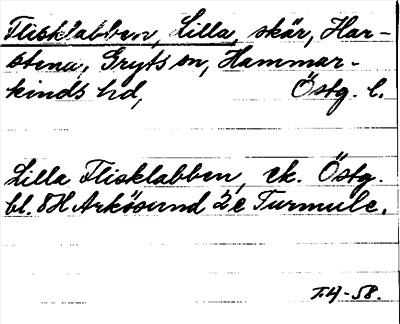 Flisklabben, Lilla, skär, Har-
stena, Gryts sn, Hammar-
kinds hd, Östg. l.
Lilla Flisklabben, ek. Östg.
bl. 8H Arkösund 2 c Turmulc.
T.H-58.